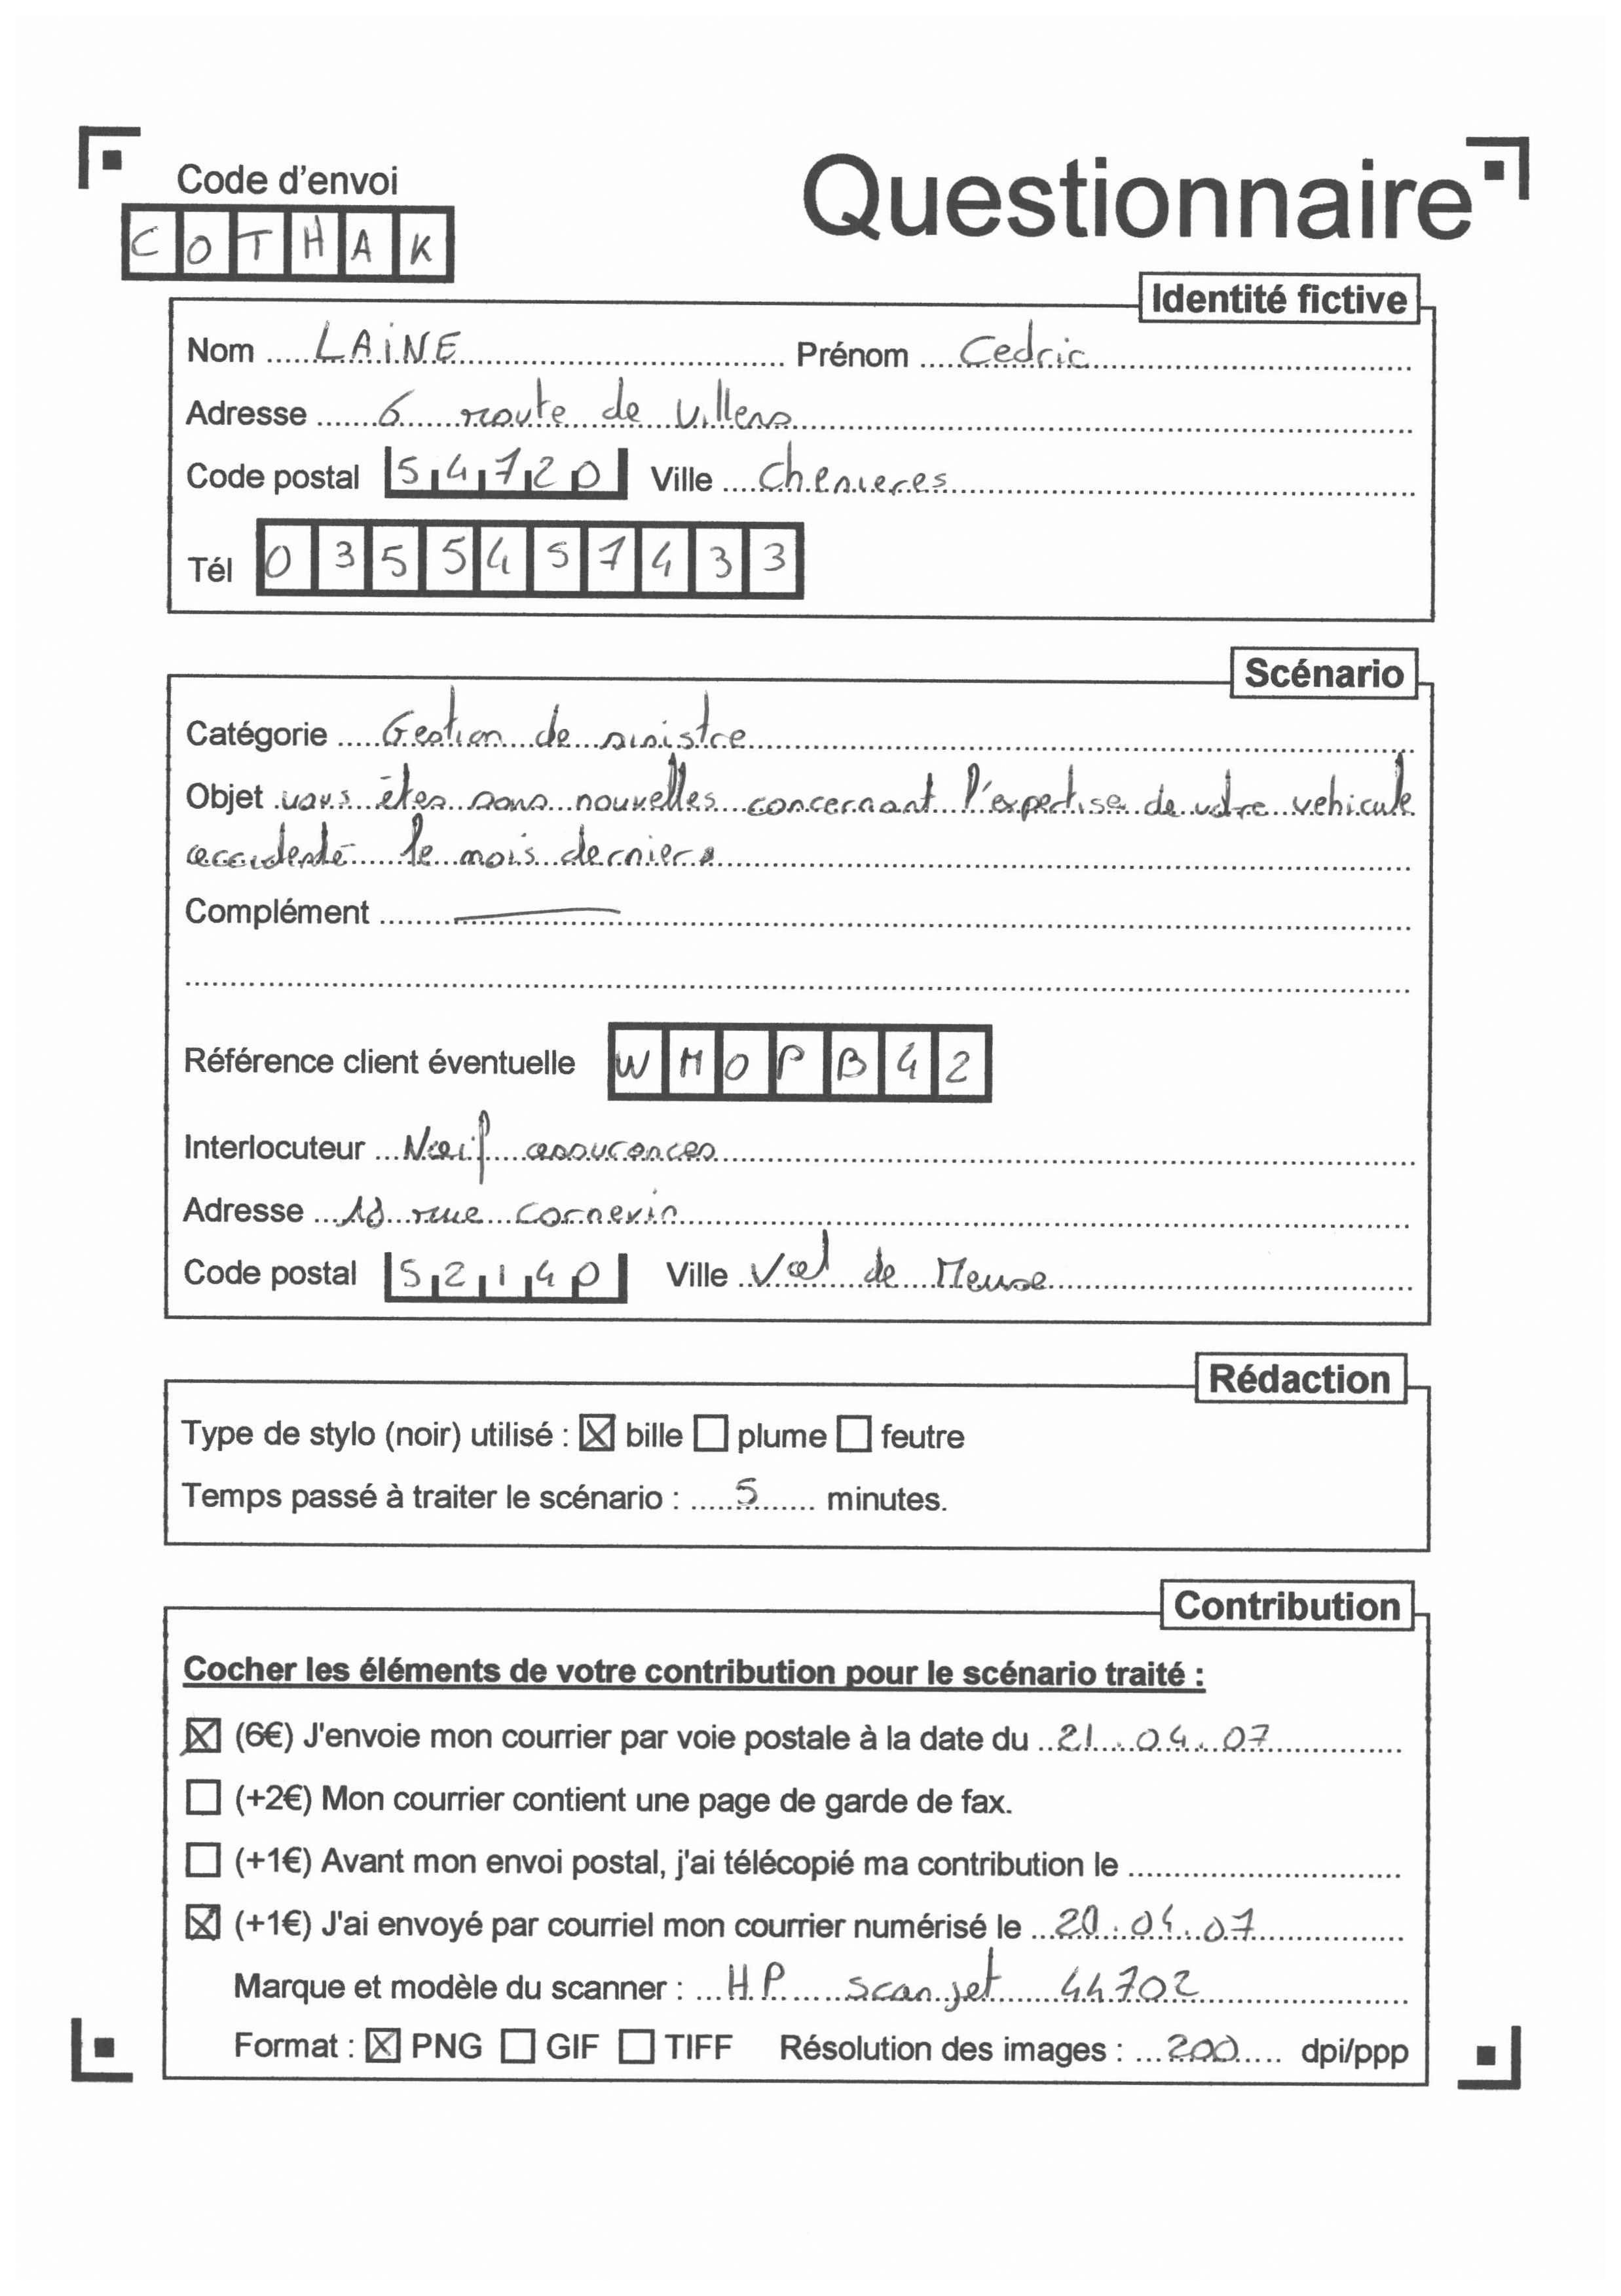 Code d'envoi
COTHAK
Questionnaire
Identité fictive
Nom LAINE Prénom Cedric
Adresse 6 route de Villers
Code postal 54720 Ville Chenieres
Tél 0355457433
Scénario
Catégorie Gestion de sinistre
Objet vous êtes sans nouvelles concernant l'expertise de votre vehicule
accidenté le mois dernier.
Complément
Référence client éventuelle WMOPB42
Interlocuteur Naif assurances
Adresse 18 rue Cornevin
Code postal 52140 Ville Val de Meuse
Rédaction
Type de stylo (noir) utilisé : ☒ bille ☐ plume ☐ feutre
Temps passé à traiter le scénario : 5 minutes.
Contribution
Cocher les éléments de votre contribution pour le scénario traité :
☒ (6€) J'envoie mon courrier par voie postale à la date du 21.04.07
☐ (+2€) Mon courrier contient une page de garde de fax.
☐ (+1€) Avant mon envoi postal, j'ai télécopié ma contribution le
☒ (+1€) J'ai envoyé par courriel mon courrier numérisé le 20.04.07
Marque et modèle du scanner : HP scanjet 44702
Format : ☒ PNG ☐ GIF ☐ TIFF Résolution des images : 200 dpi/ppp